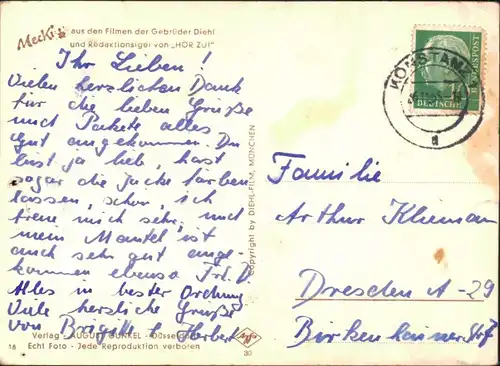 Mecki aus den Filmen der Gebrüder Diehl
und Redaktionsigel von "HÖR ZU!"
Ihr Lieben!
Vielen herzlichen Dank
für die lieben Grüße
und Pakete alles
Gut angekommen. Du
bist ja lieb, hast
sogar die Jacke färben
lassen, schön, ich
freue mich sehr, und
mein Mantel ist
auch sehr gut ange-
kommen ebenso Frl. D.
Alles in bester Ordnung
Viele herzliche Grüße
von Brigitte & Herbert
Verlag AUGUST GUNKEL - Düsseldorf
18 Echt Foto - Jede Reproduktion verboten
Agfa
30
Copyright by DIEHL-FILM, MÜNCHEN
KONSTANZ
d
DEUTSCHE
BUNDESPOST
Familie
Arthur Klieman
Dresden A-29
Birkenhainer Str 7